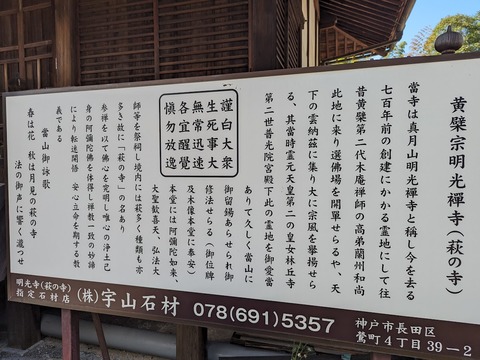 黄檗宗明光禪寺(萩の寺)
當寺は真月山明光禪寺と称し今を去る
七百年前の創建にかかる霊地にして往
昔黄檗第二代木庵禅師の高弟蘭州和尚
此地に来り選佛場を開單せらるや、天
下の雲納茲に集り大に宗風を擧揚せら
る、其當時霊元天皇第二の皇女林丘寺
第二世普光院宮殿下此の霊地を御愛當
ありて久しく當山に
御留錫あらせられ御
修法せらる(御位牌
及木像本堂に奉安)
本堂には阿弥陀如来、
大聖歓喜天、弘法大
謹白大衆
生死事大
無常迅速
各宜醒覺
愼勿放逸
師等を祭祠し境内には萩多く種類も亦
多き故に「萩の寺」の名あり
參禅を以て佛心を究明し唯心の浄土己
身の阿弥陀佛を体得し禅教一致の妙諦
により転迷開悟 安心立命を期する教
義である
當山御詠歌
春は花 秋は月見の萩の寺
法の御声に響く瀧つせ
明光寺(萩の寺)
指定石材店
(株)宇山石材 078(691)5357
神戸市長田区
鶯町4丁目39-2